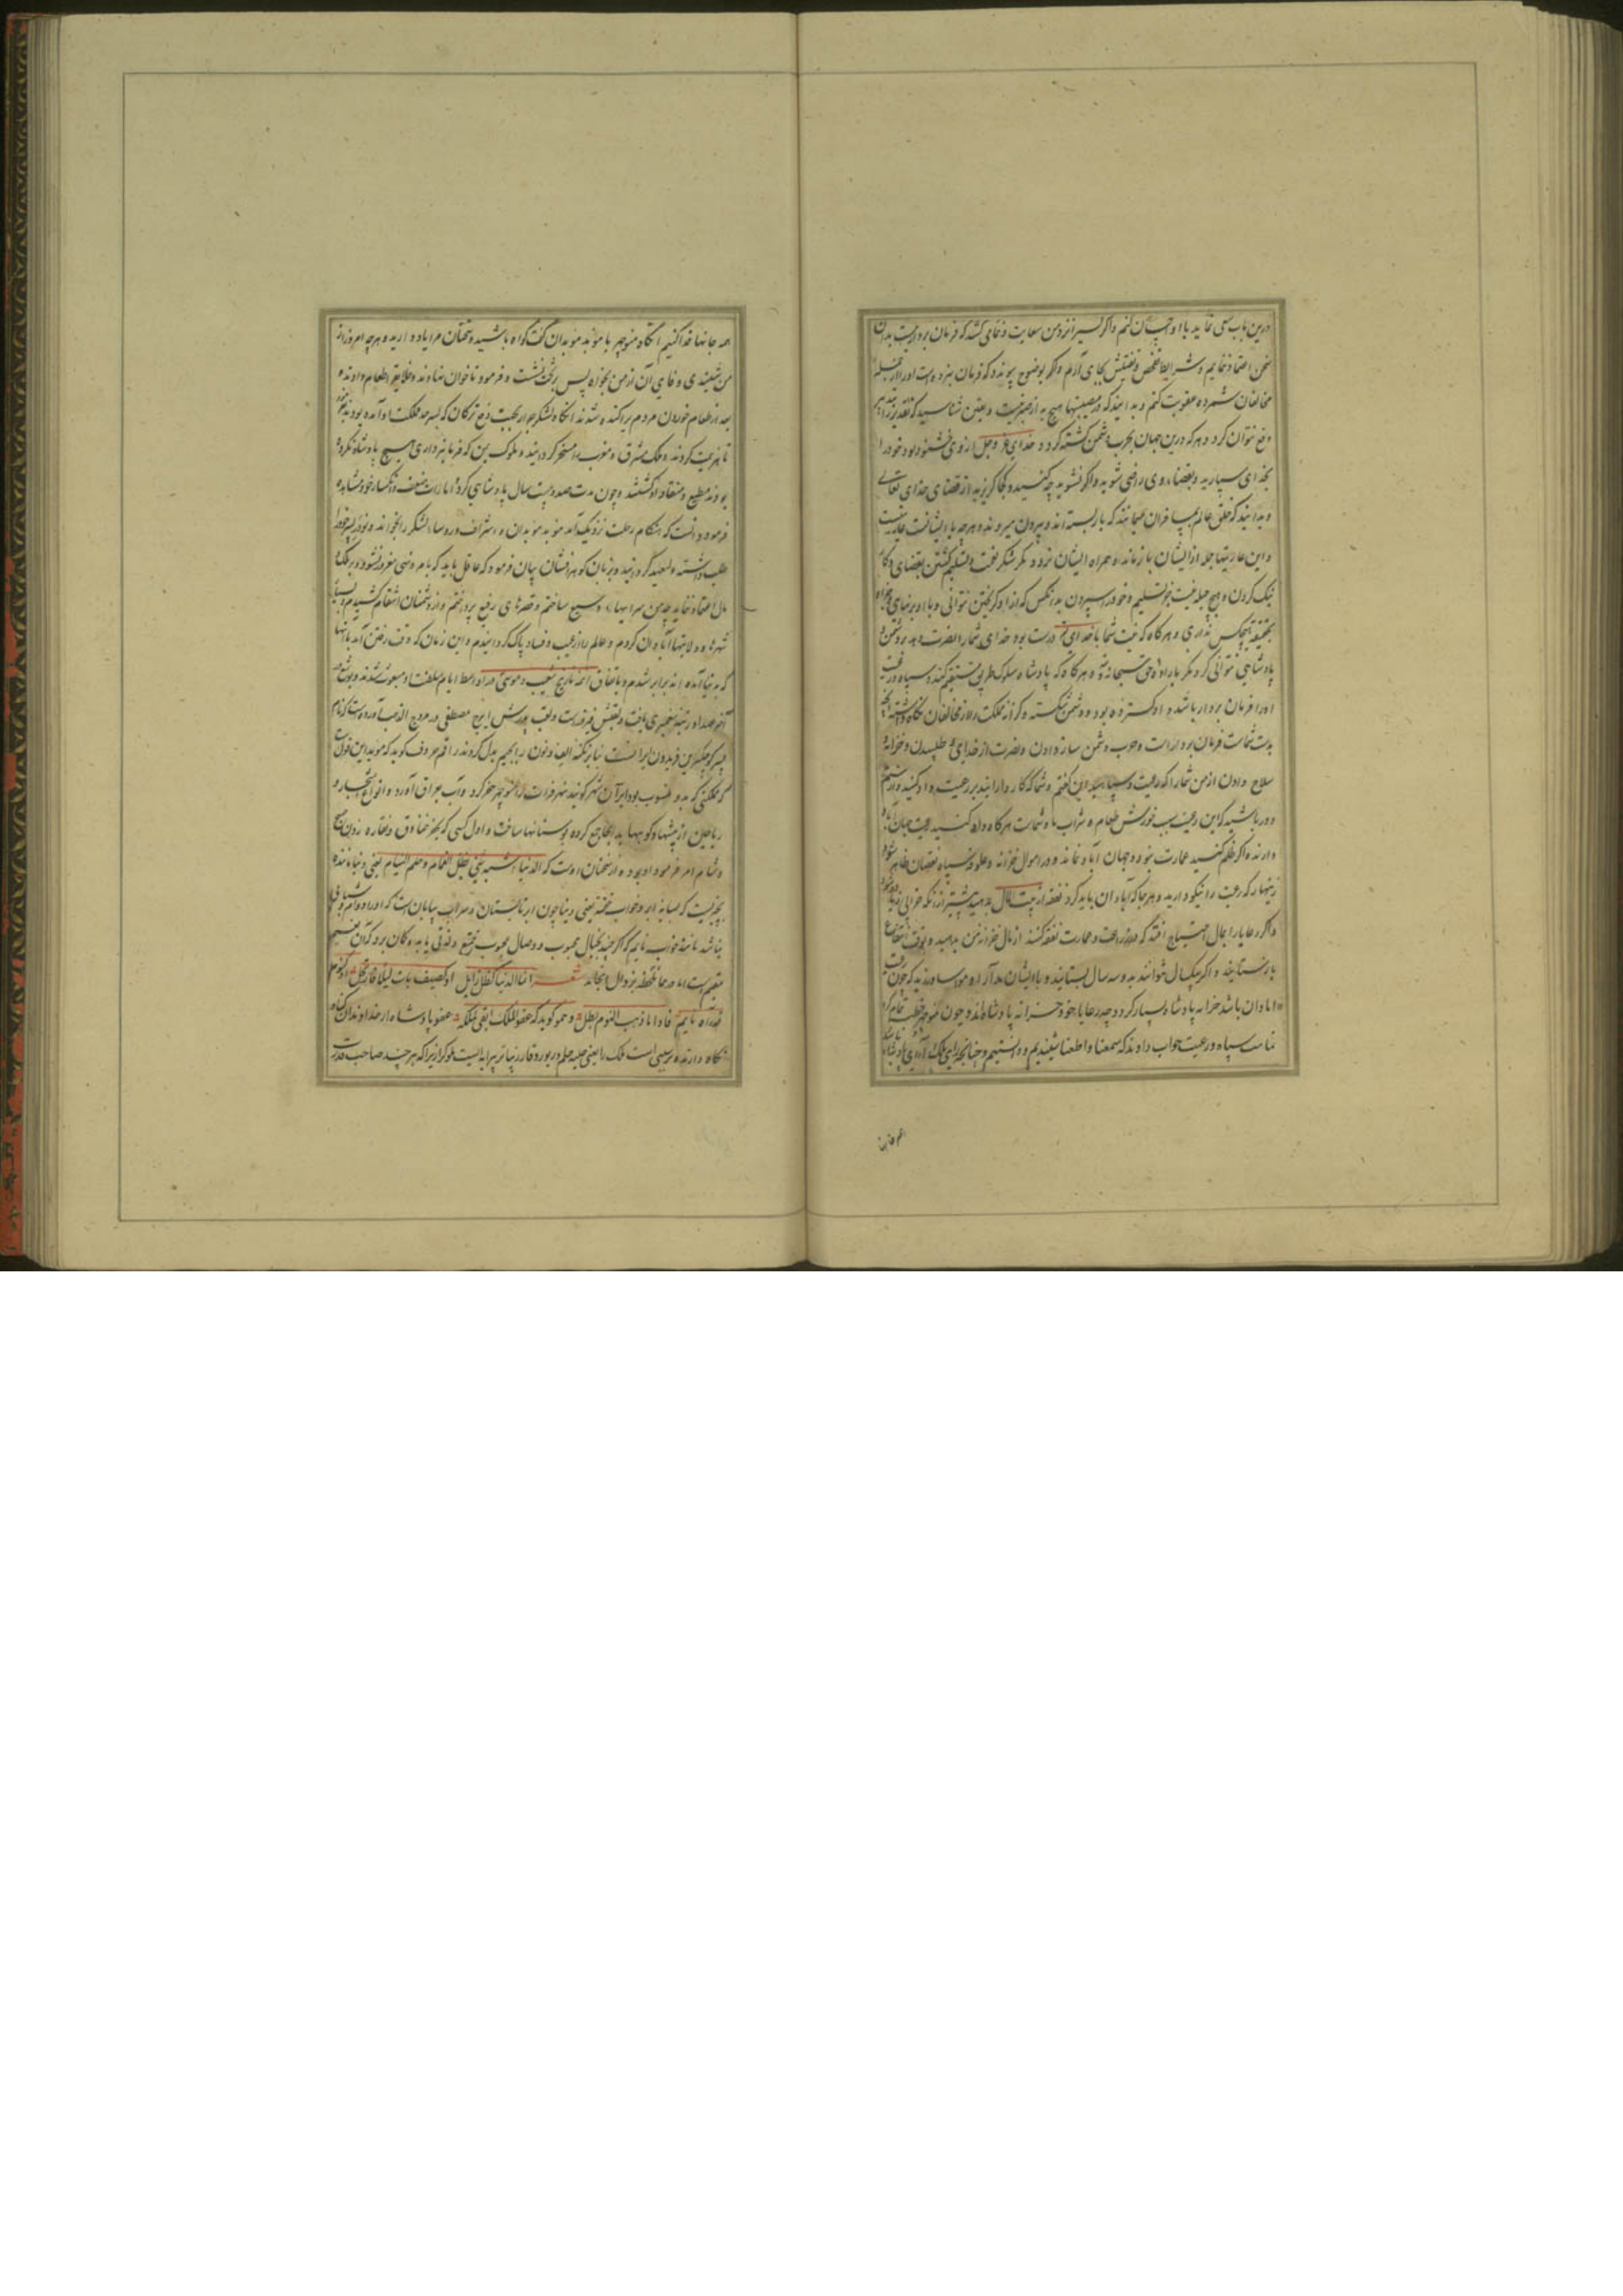 درین باب سعی نماید با او احسان کنم و اگر کسی از نزد من سعایت و نمامی کند که فرمان بردار نیست بدان
سخن اعتماد ننمایم و شرایط تفحص و تفتیش بجای آرم و اگر بوضوح پیوندد که فرمان نبرده است او را از جمله
مخالفان شمرده عقوبت کنم و بدانید که در مصیبتها هیچ به از صبر نیست و یقین شناسید که تقدیر را
دفع نتوان کرد و هر که درین جهان بحرب دشمن کشته گردد خدای عز و جل از وی خشنود بود خود را
بخدای سپارید و بقضاء وی راضی شوید و اگر نشوید چه کنید و کجا گریزید از قضای خدای تعالی
و بدانید که خلق عالم بمسافران میمانند که بار بسته اند و بیرون میروند و هر چه با ایشانست عاریتست
و این عاریتها جمله از ایشان باز ماند و همراه ایشان نرود مگر شکر نعمت و تسلیم گشتن بقضای و کار
نیک کردن و هیچ حیله نیست بجز تسلیم و خود را سپردن بدانکس که از او گریختن نتوانی و با او بر نیایی
بحقیقة هیچکس نداری و هر گاه که نیت شما با خدای درست بود خدای شما را نصرت دهد بر دشمن و
پادشاهی نتوانی کرد مگر باراده حق سبحانه و هر گاه که پادشاه سلوک طریق مستقیم کند و سپاه و رعیت
او را فرمان بردار باشند داد گسترده بود و دشمن شکسته گردد و مملکت از مخالفان نگاه داشته
بدست شماست فرمان برداری است و حرب دشمن ساز دادن و نصرت از خدای طلبیدن و خزانه و
سلاح دادن از من شما را که رعیت و سپاهید این گفتم و شما که کار دارانید بر رعیت داد کنید و از ستم
دور باشید که این رعیت سبب خورش طعام و شراب ما و شماست هر گاه داد کنید رعیت جهان آباد
دارند و اگر ظلم کنید عمارت نبود و جهان آباد نماند و در اموال خزانه و علوفه سپاه نقصان ظاهر شود
زینهار که رعیت را نیکو دارید و هر جا که آبادان باید کرد نفقه از بیت المال بدهید پیشتر از آنکه خرابی زیاده شود
و اگر رعایا را بمال احتیاج افتد که در زراعت و عمارت نفقه کنند از مال خزانه من بدهید و بوقت ارتفاع
باز ستانید و اگر بیکسال نتوانند بدو سه سال بستانید و با ایشان مدارا و مواسا ورزید که چون رعیت
آبادان باشد خزانه پادشاه بسیار گردد چه رعایا خود خزانه پادشاه اند و چون منوچهر خطبه تمام کرد
تمامت سپاه و رعیت جواب دادند که سمعنا و اطعنا شنیدیم و دانستیم و چنانچه رای ملک
همه جانها فدا کنیم
همه جانها فدا کنیم آنگاه منوچهر با موبد موبدان گفت گواه باشید و سخنان مرا یاد دارید و هر چه امروز از
من شنیدی وفای آن از من بخواه پس بر تخت نشست و فرمود تا خوان نهادند و خلایق را طعام دادند و
بعد از طعام خوردن مردم پراکنده شدند آنگاه لشکر جرار بجهت دفع ترکان که بسرحد مملکت او آمده بودند
تا هزیمت کردند و ملک مشرق و مغرب را مسخر گردانید و ملوک یمن که فرمانبرداری هیچ پادشاه نکرده
بودند مطیع و منقاد او گشتند و چون مدت صد و بیست سال پادشاهی کرد امارات ضعف و انکسار خود مشاهده
فرمود دانست که هنگام رحلت نزدیک آمد موبد موبدان و اشراف و روساء لشکر را بخواند و نوذر پسر خود را
طلب داشته ولیعهد گردانید و بزبان گوهر افشان بیان فرمود که عاقل باید که بامر و نهی مغرور نشود و بر ملک و
مال اعتماد ننماید چه من سرایها وسیع ساختم و قصرهای رفیع پرداختم و از دشمنان انتقام کشیدم و بسیار
شهرها و ولایتها آبادان کردم و عالم را از عیب و فساد پاک گردانیدم و این زمان که وقت رفتن آمد با آنها
که بدنیا نیامده اند برابر شدم و باتفاق ائمه تاریخ شعیب و موسی در اواسط ایام سلطنت او مبعوث شدند و یوشع
رتبه پیغمبری یافت و لقبش فیروزست و لقب پدرش ایرج مصطفی در مروج الذهب آورده است که نام
پسر کوچکترین فریدون ایرانست بنابر نکته الف و نون را بجیم بدل کردند راقم حروف گوید که موید این قول است
که مملکتی که بدو منسوب بود ایران شهر گویند نهر فرات را منوچهر حفر کرد و آب بعراق آورد و انواع اشجار و
ریاحین از بیشها و کوهها بدانجا جمع کرده بوستانها ساخت و اول کسی که بحفر خنادق و نقاره زدن صبح
و شام امر فرمود او بود و از سخنان اوست که الدنیا اشبه شیء بظل الغمام و حلم النیام یعنی دنیا ماننده
بچیزیست که بسایه ابر و خواب خفته یعنی دنیا چون ابر تابستان و سراب بیابان است که او را دوام و ثباتی
نباشد مانند خواب نایم که اگر چند بخیال محبوب و وصال محبوب تمتع و لذتی یابد و گمان برد که آن نعیم
مقیم است اما در همان لحظه بزوال انجامد شعر انما الدنیا کظل زایل او کضیف بات لیلا فارتحل او کنوم
قد رآه نایم فاذا ما ذهب النوم بطل و همو گوید که عفو الملک ابقی لملکه عفو پادشاه از خداوندان گناه
نگاه دارنده ترسیبی است ملک را یعنی حلیه حلم و زیور وقار زیباتر پیرایه ایست ملوک را زیرا که هر چند صاحب قدرت